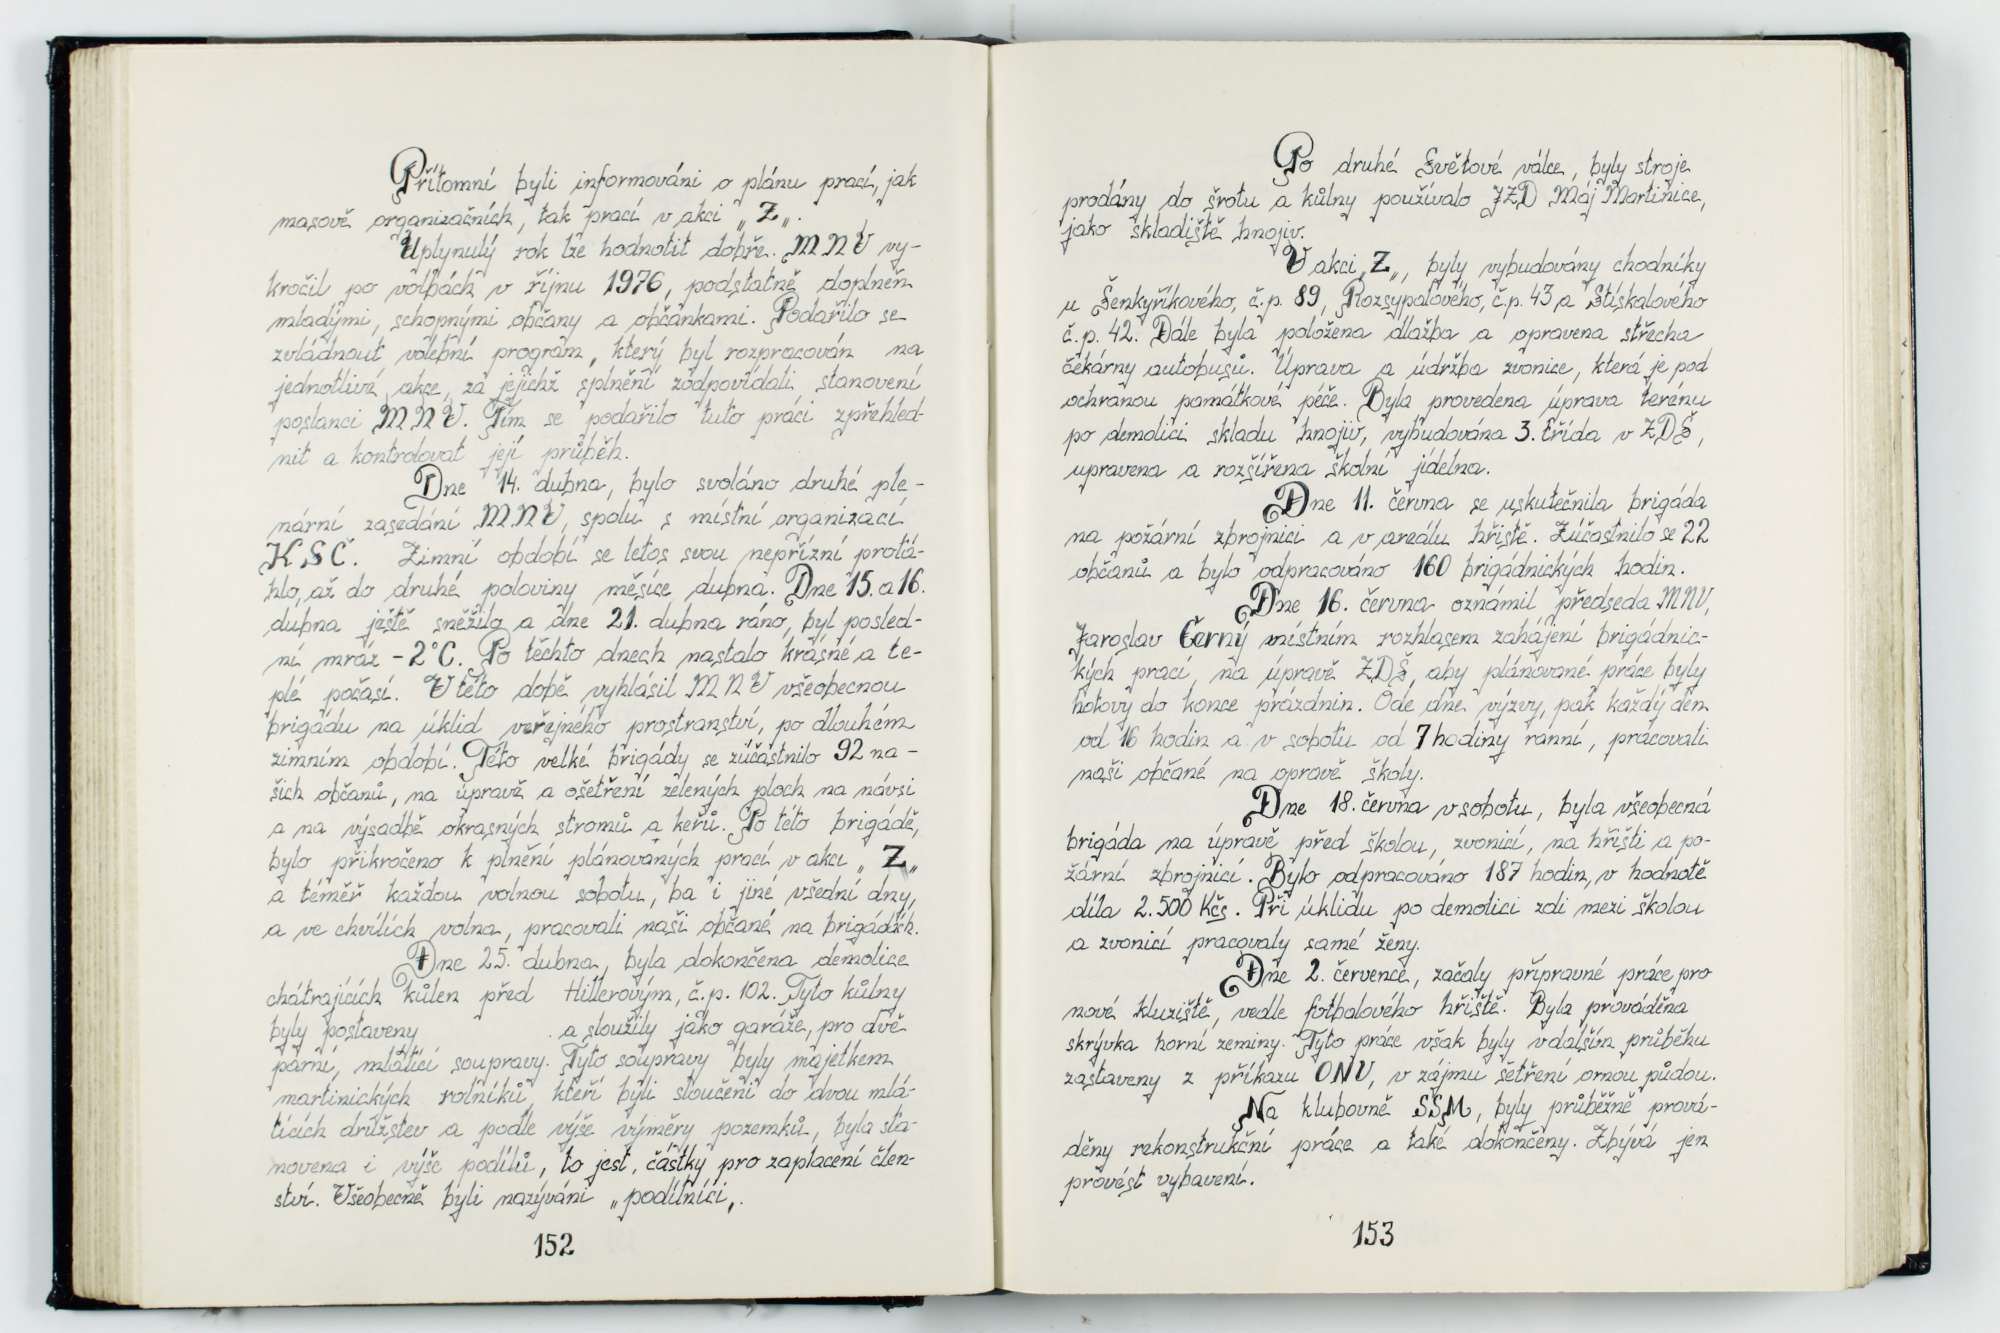 Přítomní byli informováni o plánu prací, jak
masově organizačních, tak prací v akci „Z„.
Uplynulý rok lze hodnotit dobře. MNV vy-
kročil po volbách v říjnu 1976, podstatně doplněn
mladými, schopnými občany a občankami. Podařilo se
zvládnout volební program, který byl rozpracován na
jednotlivé akce, za jejichž splnění zodpovídali stanovení
poslanci MNV. Tím se podařilo tuto práci zpřehled-
nit a kontrolovat její průběh.
Dne 14. dubna, bylo svoláno druhé ple-
nární zasedání MNV, spolu s místní organizací
KSČ. Zimní období se letos svou nepřízní protá-
hlo, až do druhé poloviny měsíce dubna. Dne 15. a 16.
dubna ještě sněžilo a dne 21. dubna ráno, byl posled-
ní mráz -2°C. Po těchto dnech nastalo krásné a te-
plé počasí. V této době vyhlásil MNV všeobecnou
brigádu na úklid veřejného prostranství, po dlouhém
zimním období. Této velké brigády se zúčastnilo 92 na-
šich občanů, na úpravě a ošetření zelených ploch na návsi
a na výsadbě okrasných stromů a keřů. Po této brigádě,
bylo přikročeno k plnění plánovaných prací v akci „Z„
a téměř každou volnou sobotu, ba i jiné všední dny,
a ve chvílích volna, pracovali naši občané na brigádách.
Dne 25. dubna, byla dokončena demolice
chátrajících kůlen před Hillerovým, č.p. 102. Tyto kůlny
byly postaveny a sloužily jako garáže, pro dvě
parní, mlátící soupravy. Tyto soupravy byly majetkem
martinických rolníků, kteří byli sloučeni do dvou mlá-
tících družstev a podle výše výměry pozemků, byla sta-
novena i výše podílů, to jest, částky pro zaplacení člen-
ství. Všeobecně byli nazýváni „podílníci„.
152
Po druhé Světové válce, byly stroje
prodány do šrotu a kůlny používalo JZD Máj Martinice,
jako skladiště hnojiv.
V akci „Z„, byly vybudovány chodníky
u Šenkyříkového, č.p. 89, Rozsypalového, č.p. 43 a Stískalového
č.p. 42. Dále byla položena dlažba a opravena střecha
čekárny autobusů. Úprava a údržba zvonice, která je pod
ochranou památkové péče. Byla provedena úprava terénu
po demolici skladu hnojiv, vybudována 3. třída v ZDŠ,
upravena a rozšířena školní jídelna.
Dne 11. června se uskutečnila brigáda
na požární zbrojnici a v areálu hřiště. Zúčastnilo se 22
občanů a bylo odpracováno 160 brigádnických hodin.
Dne 16. června oznámil předseda MNV,
Jaroslav Černý místním rozhlasem zahájení brigádnic-
kých prací, na úpravě ZDŠ, aby plánované práce byly
hotovy do konce prázdnin. Ode dne výzvy, pak každý den
od 16 hodin a v sobotu od 7 hodiny ranní, pracovali
naši občané na opravě školy.
Dne 18. června v sobotu, byla všeobecná
brigáda na úpravě před školou, zvonicí, na hřišti a po-
žární zbrojnicí. Bylo odpracováno 187 hodin, v hodnotě
díla 2.500 Kčs. Při úklidu po demolici zdi mezi školou
a zvonicí pracovaly samé ženy.
Dne 2. července, začaly přípravné práce pro
nové kluziště, vedle fotbalového hřiště. Byla prováděna
skrývka horní zeminy. Tyto práce však byly v dalším průběhu
zastaveny z příkazu ONV, v zájmu šetření ornou půdou.
Na klubovně SSM, byly průběžně prová-
děny rekonstrukční práce a také dokončeny. Zbývá jen
provést vybavení.
153